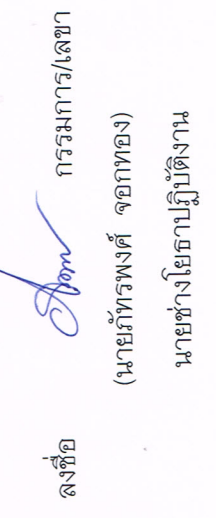 ลงชื่อ กรรมการ/เลขา
(นายภัทรพงศ์ จอกทอง)
นายช่างโยธาปฏิบัติงาน